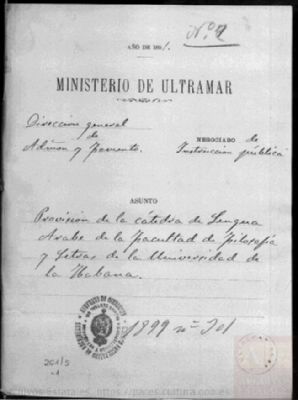 Nº 9
AÑO DE 1891.
MINISTERIO DE ULTRAMAR
Dirección general
de
Admon y Fomento.
NEGOCIADO de
Instrucción pública
ASUNTO
Provisión de la cátedra de Lengua
Arabe de la Facultad de Filosofía
y Letras de la Universidad de
la Habana.
1899 nº
201/5